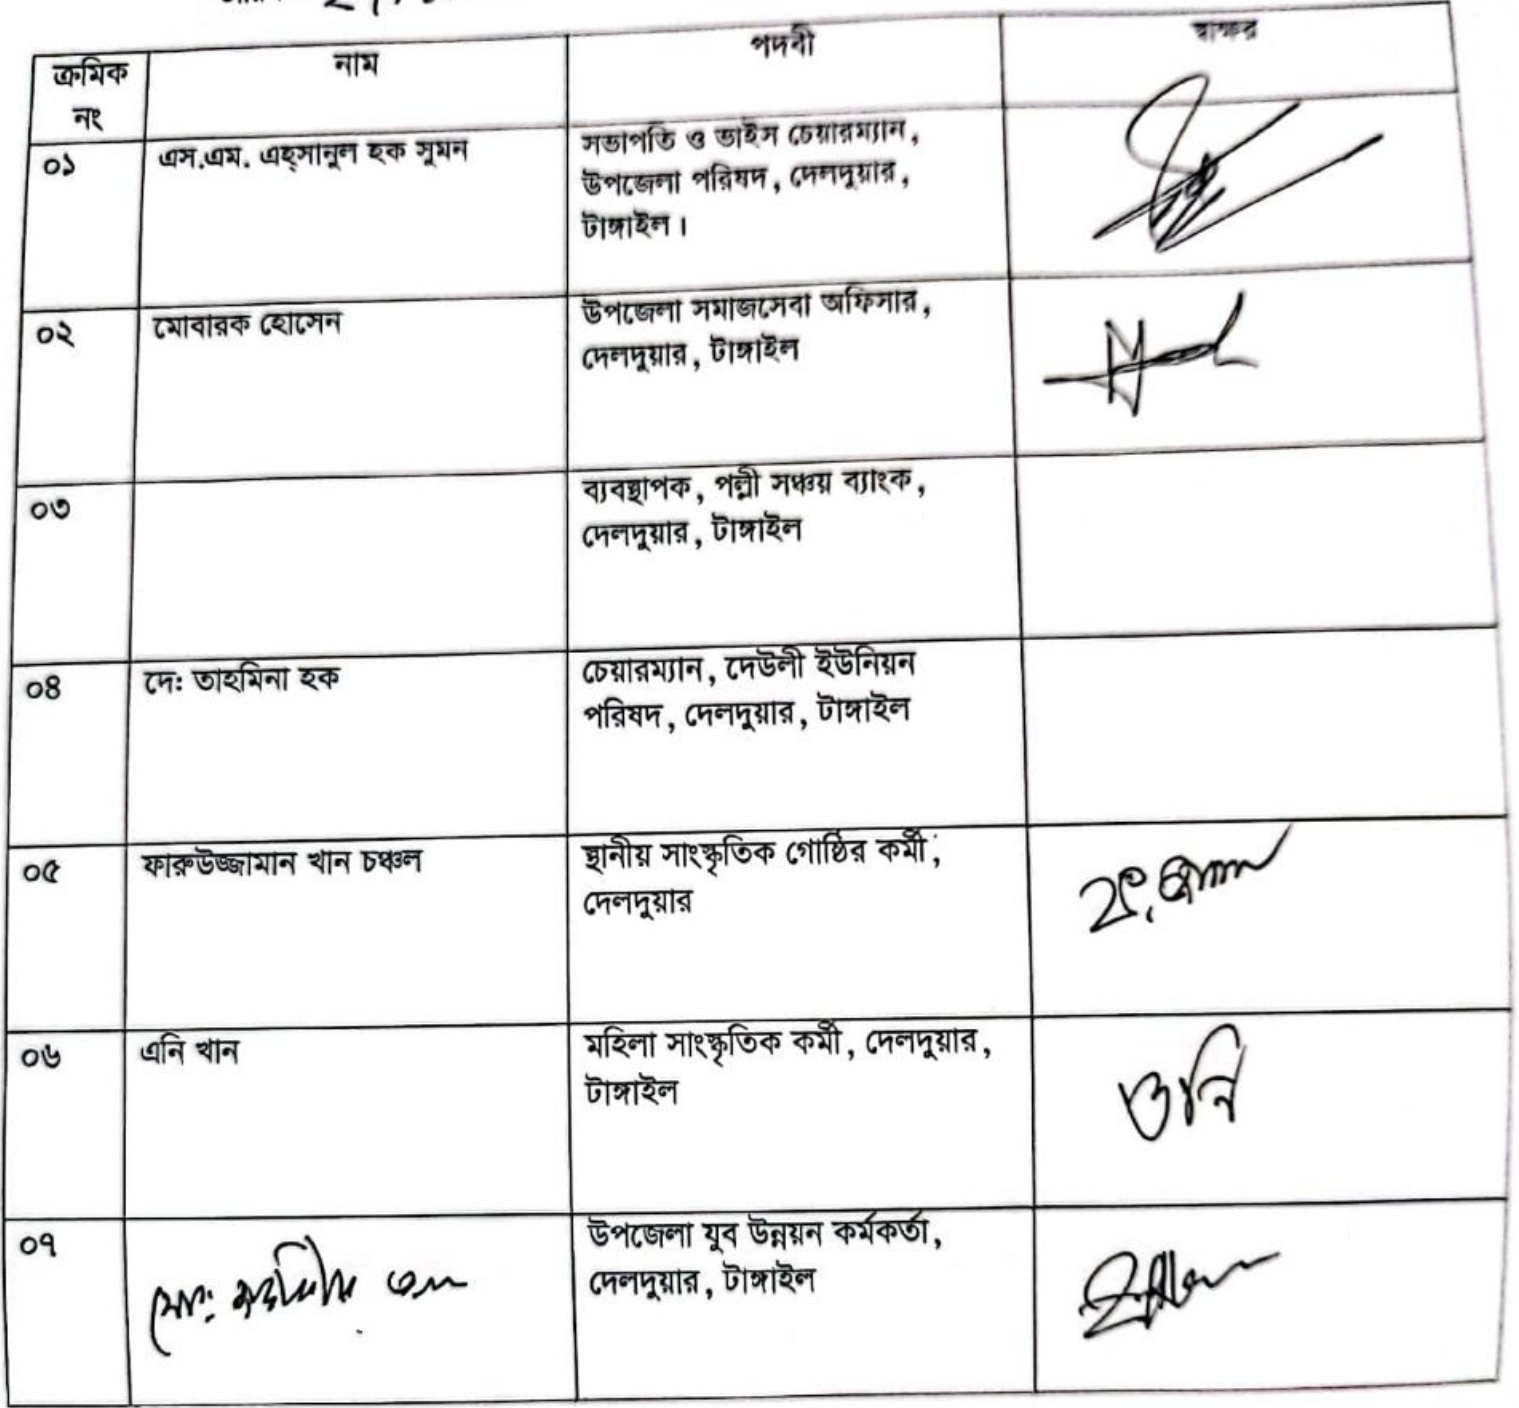 ক্রমিক নং নাম পদবী স্বাক্ষর
০১ এস.এম. এহ্সানুল হক সুমন সভাপতি ও ভাইস চেয়ারম্যান,
উপজেলা পরিষদ, দেলদুয়ার,
টাঙ্গাইল।
০২ মোবারক হোসেন উপজেলা সমাজসেবা অফিসার,
দেলদুয়ার, টাঙ্গাইল
০৩ ব্যবস্থাপক, পল্লী সঞ্চয় ব্যাংক,
দেলদুয়ার, টাঙ্গাইল
০৪ দে: তাহমিনা হক চেয়ারম্যান, দেউলী ইউনিয়ন
পরিষদ, দেলদুয়ার, টাঙ্গাইল
০৫ ফারুউজ্জামান খান চঞ্চল স্থানীয় সাংস্কৃতিক গোষ্ঠির কর্মী,
দেলদুয়ার
০৬ এনি খান মহিলা সাংস্কৃতিক কর্মী, দেলদুয়ার,
টাঙ্গাইল
০৭ মোঃ উপজেলা যুব উন্নয়ন কর্মকর্তা,
দেলদুয়ার, টাঙ্গাইল